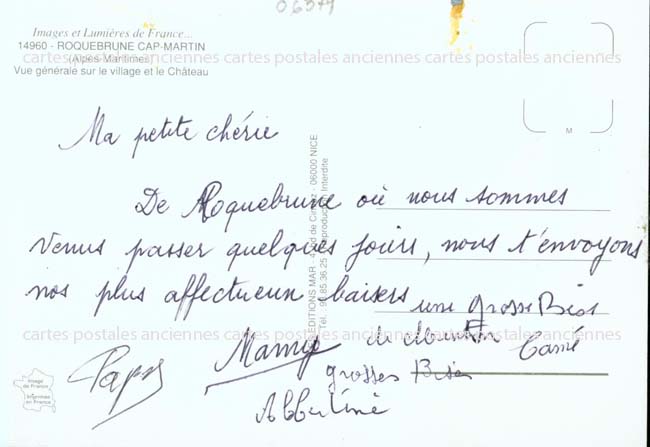 06379
Images et Lumières de France...
14960 - ROQUEBRUNE CAP-MARTIN
(Alpes-Maritimes)
Vue générale sur le village et le Château
cartes postales anciennes cartes postales anciennes cartes postales anciennes
M
Ma petite chérie
De Roquebrune où nous sommes
venus passer quelques jours, nous t'envoyons
nos plus affectueux baisers
une grosse Bise
de
Mamy
Papy
grosses Bises
Albertine
EDITIONS MAR - 06000 NICE
Reproduction Interdite
cartes postales anciennes cartes postales anciennes cartes postales anciennes
Image
de France
Imprimée
en France